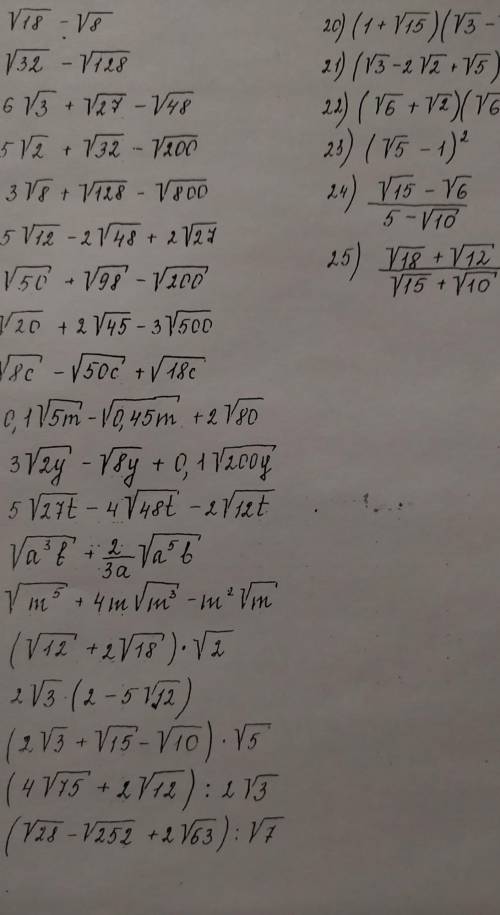 √18 - √8
√32 - √128
6√3 + √27 - √48
5√2 + √32 - √200
3√8 + √128 - √800
5√12 - 2√48 + 2√27
√50 + √98 - √200
√20 + 2√45 - 3√500
√8c - √50c + √18c
0,1√5m - √0,45m + 2√80
3√2y - √8y + 0,1√200y
5√27t - 4√48t - 2√12t
√a³b + 2/3a √a⁵b
√m⁵ + 4m√m³ - m²√m
(√12 + 2√18)·√2
2√3·(2 - 5√12)
(2√3 + √15 - √10)·√5
(4√75 + 2√12) : 2√3
(√28 - √252 + 2√63) : √7
20) (1 + √15)(√3 -
21) (√3 - 2√2 + √5)
22) (√6 + √2)(√6
23) (√5 - 1)²
24) (√15 - √6)/(5 - √10)
25) (√18 + √12)/(√15 + √10)